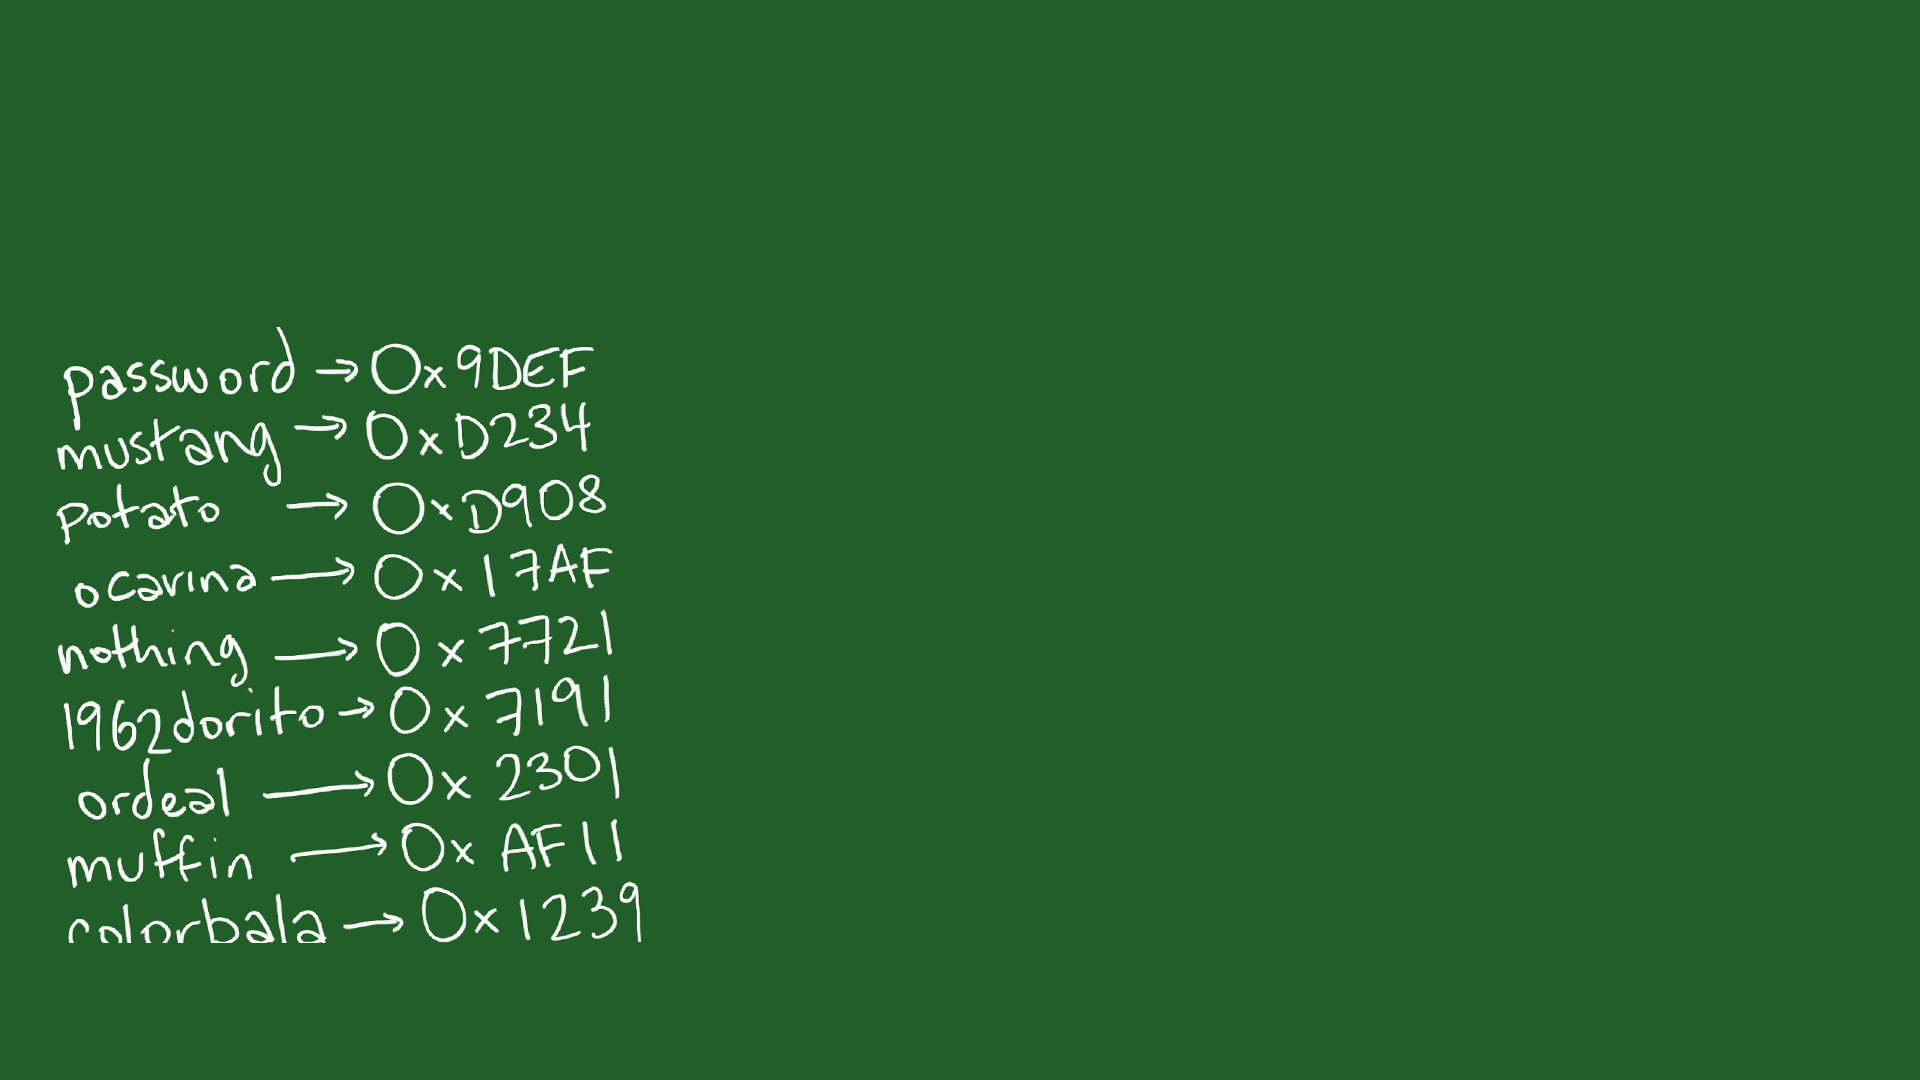 password → 0x9DEF
mustang → 0xD234
potato → 0xD908
ocarina → 0x17AF
nothing → 0x7721
1962dorito → 0x7191
ordeal → 0x2301
muffin → 0xAF11
colorbala → 0x1239